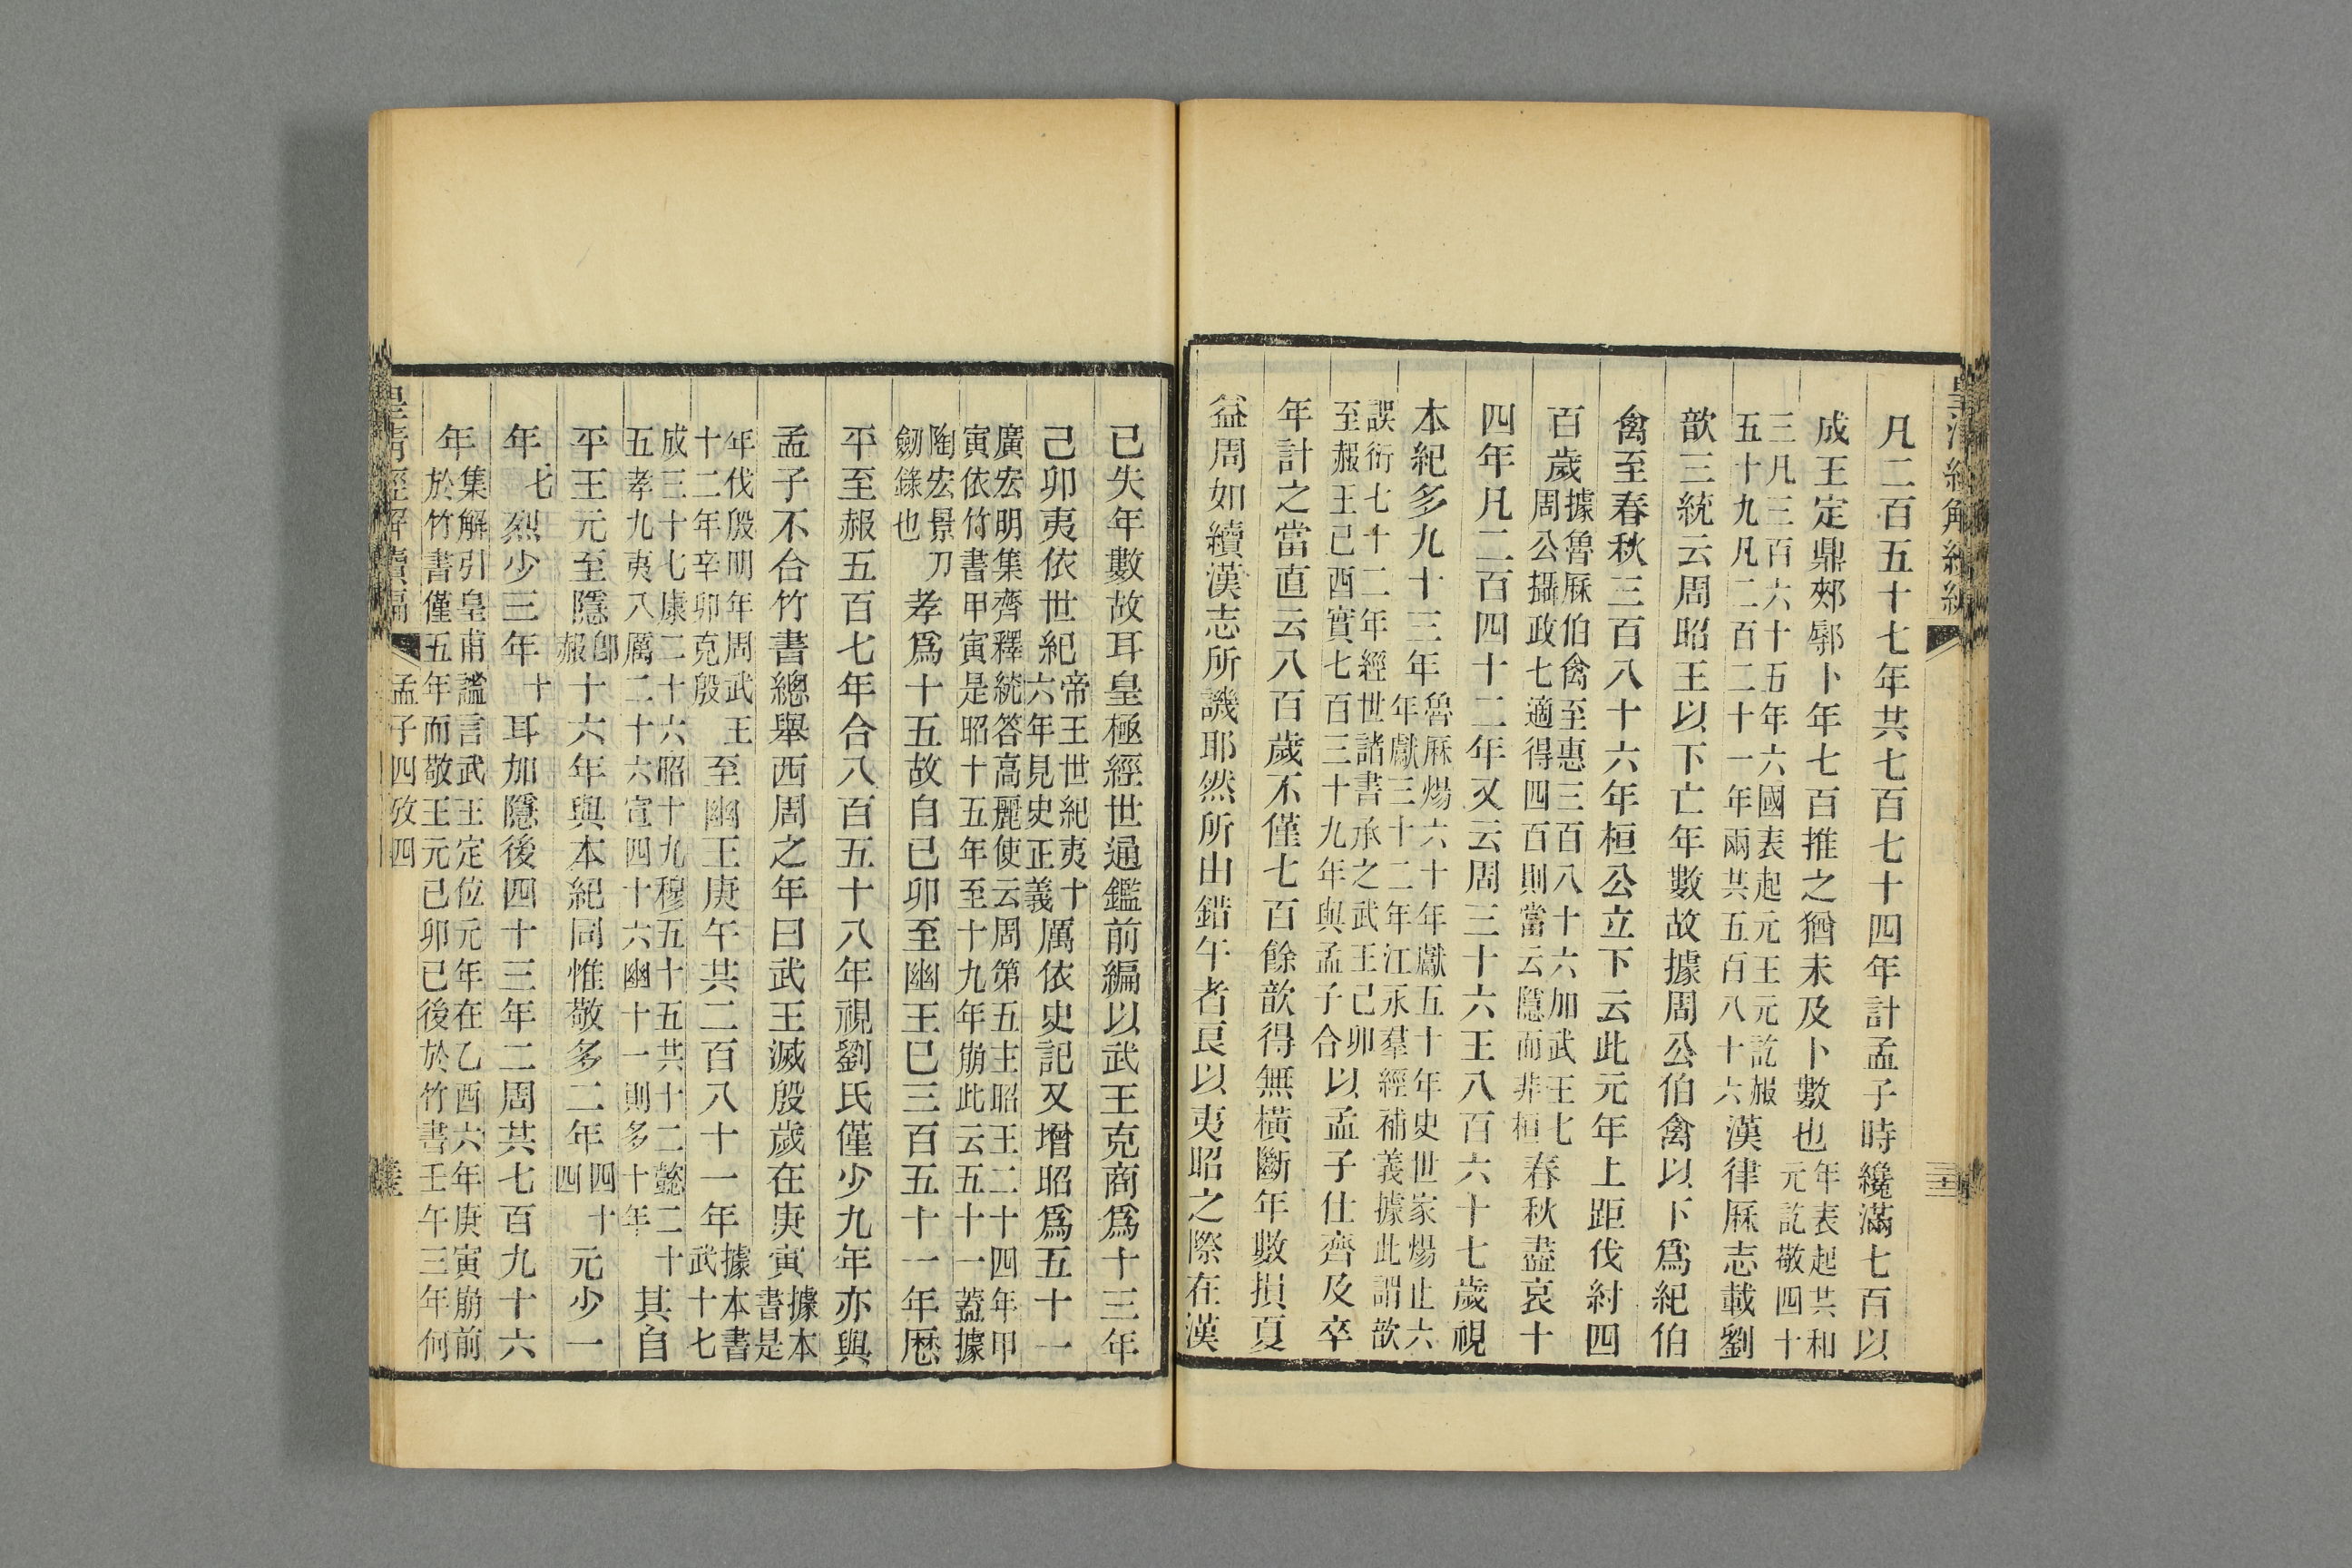 凡二百五十七年共七百七十四年計孟子時纔滿七百以
成王定鼎郟鄏卜年七百推之猶未及卜數也年表起共和元訖敬四十
三凡三百六十五年六國表起元王元訖赧五十九凡二百二十一年兩共五百八十六漢律厤志載劉
歆三統云周昭王以下亡年數故據周公伯禽以下爲紀伯
禽至春秋三百八十六年桓公立下云此元年上距伐紂四
百歲據魯厤伯禽至惠三百八十六加武王七周公攝政七適得四百則當云隱而非桓春秋盡哀十
四年凡二百四十二年又云周三十六王八百六十七歲視
本紀多九十三年魯厤煬六十年獻五十年史世家煬止六年獻三十二年江永羣經補義據此謂歆
誤衍七十二年經世諸書承之武王己卯至赧王己酉實七百三十九年與孟子合以孟子仕齊及卒
年計之當直云八百歲不僅七百餘歆得無橫斷年數損夏
益周如續漢志所譏耶然所由錯午者良以夷昭之際在漢
已失年數故耳皇極經世通鑑前編以武王克商爲十三年
己卯夷依世紀帝王世紀夷十六年見史正義厲依史記又增昭爲五十一
廣宏明集齊釋統答高麗使云周第五主昭王二十四年甲寅依竹書甲寅是昭十五年至十九年崩此云五十一蓋據
陶宏景刀劒錄也孝爲十五故自己卯至幽王已三百五十一年厯
平至赧五百七年合八百五十八年視劉氏僅少九年亦與
孟子不合竹書總舉西周之年曰武王滅殷歲在庚寅據本書是
年伐殷明年周武王十二年辛卯克殷至幽王庚午共二百八十一年據本書武十七
成三十七康二十六昭十九穆五十五共十二懿二十五孝九夷八厲二十六宣四十六幽十一則多十年其自
平王元至隱即赧十六年與本紀同惟敬多二年四十四元少一
年七烈少三年十耳加隱後四十三年二周共七百九十六
年集解引皇甫謐言武王定位元年在乙酉六年庚寅崩前於竹書僅五年而敬王元己卯已後於竹書壬午三年何
皇清經解續編 孟子四攷四